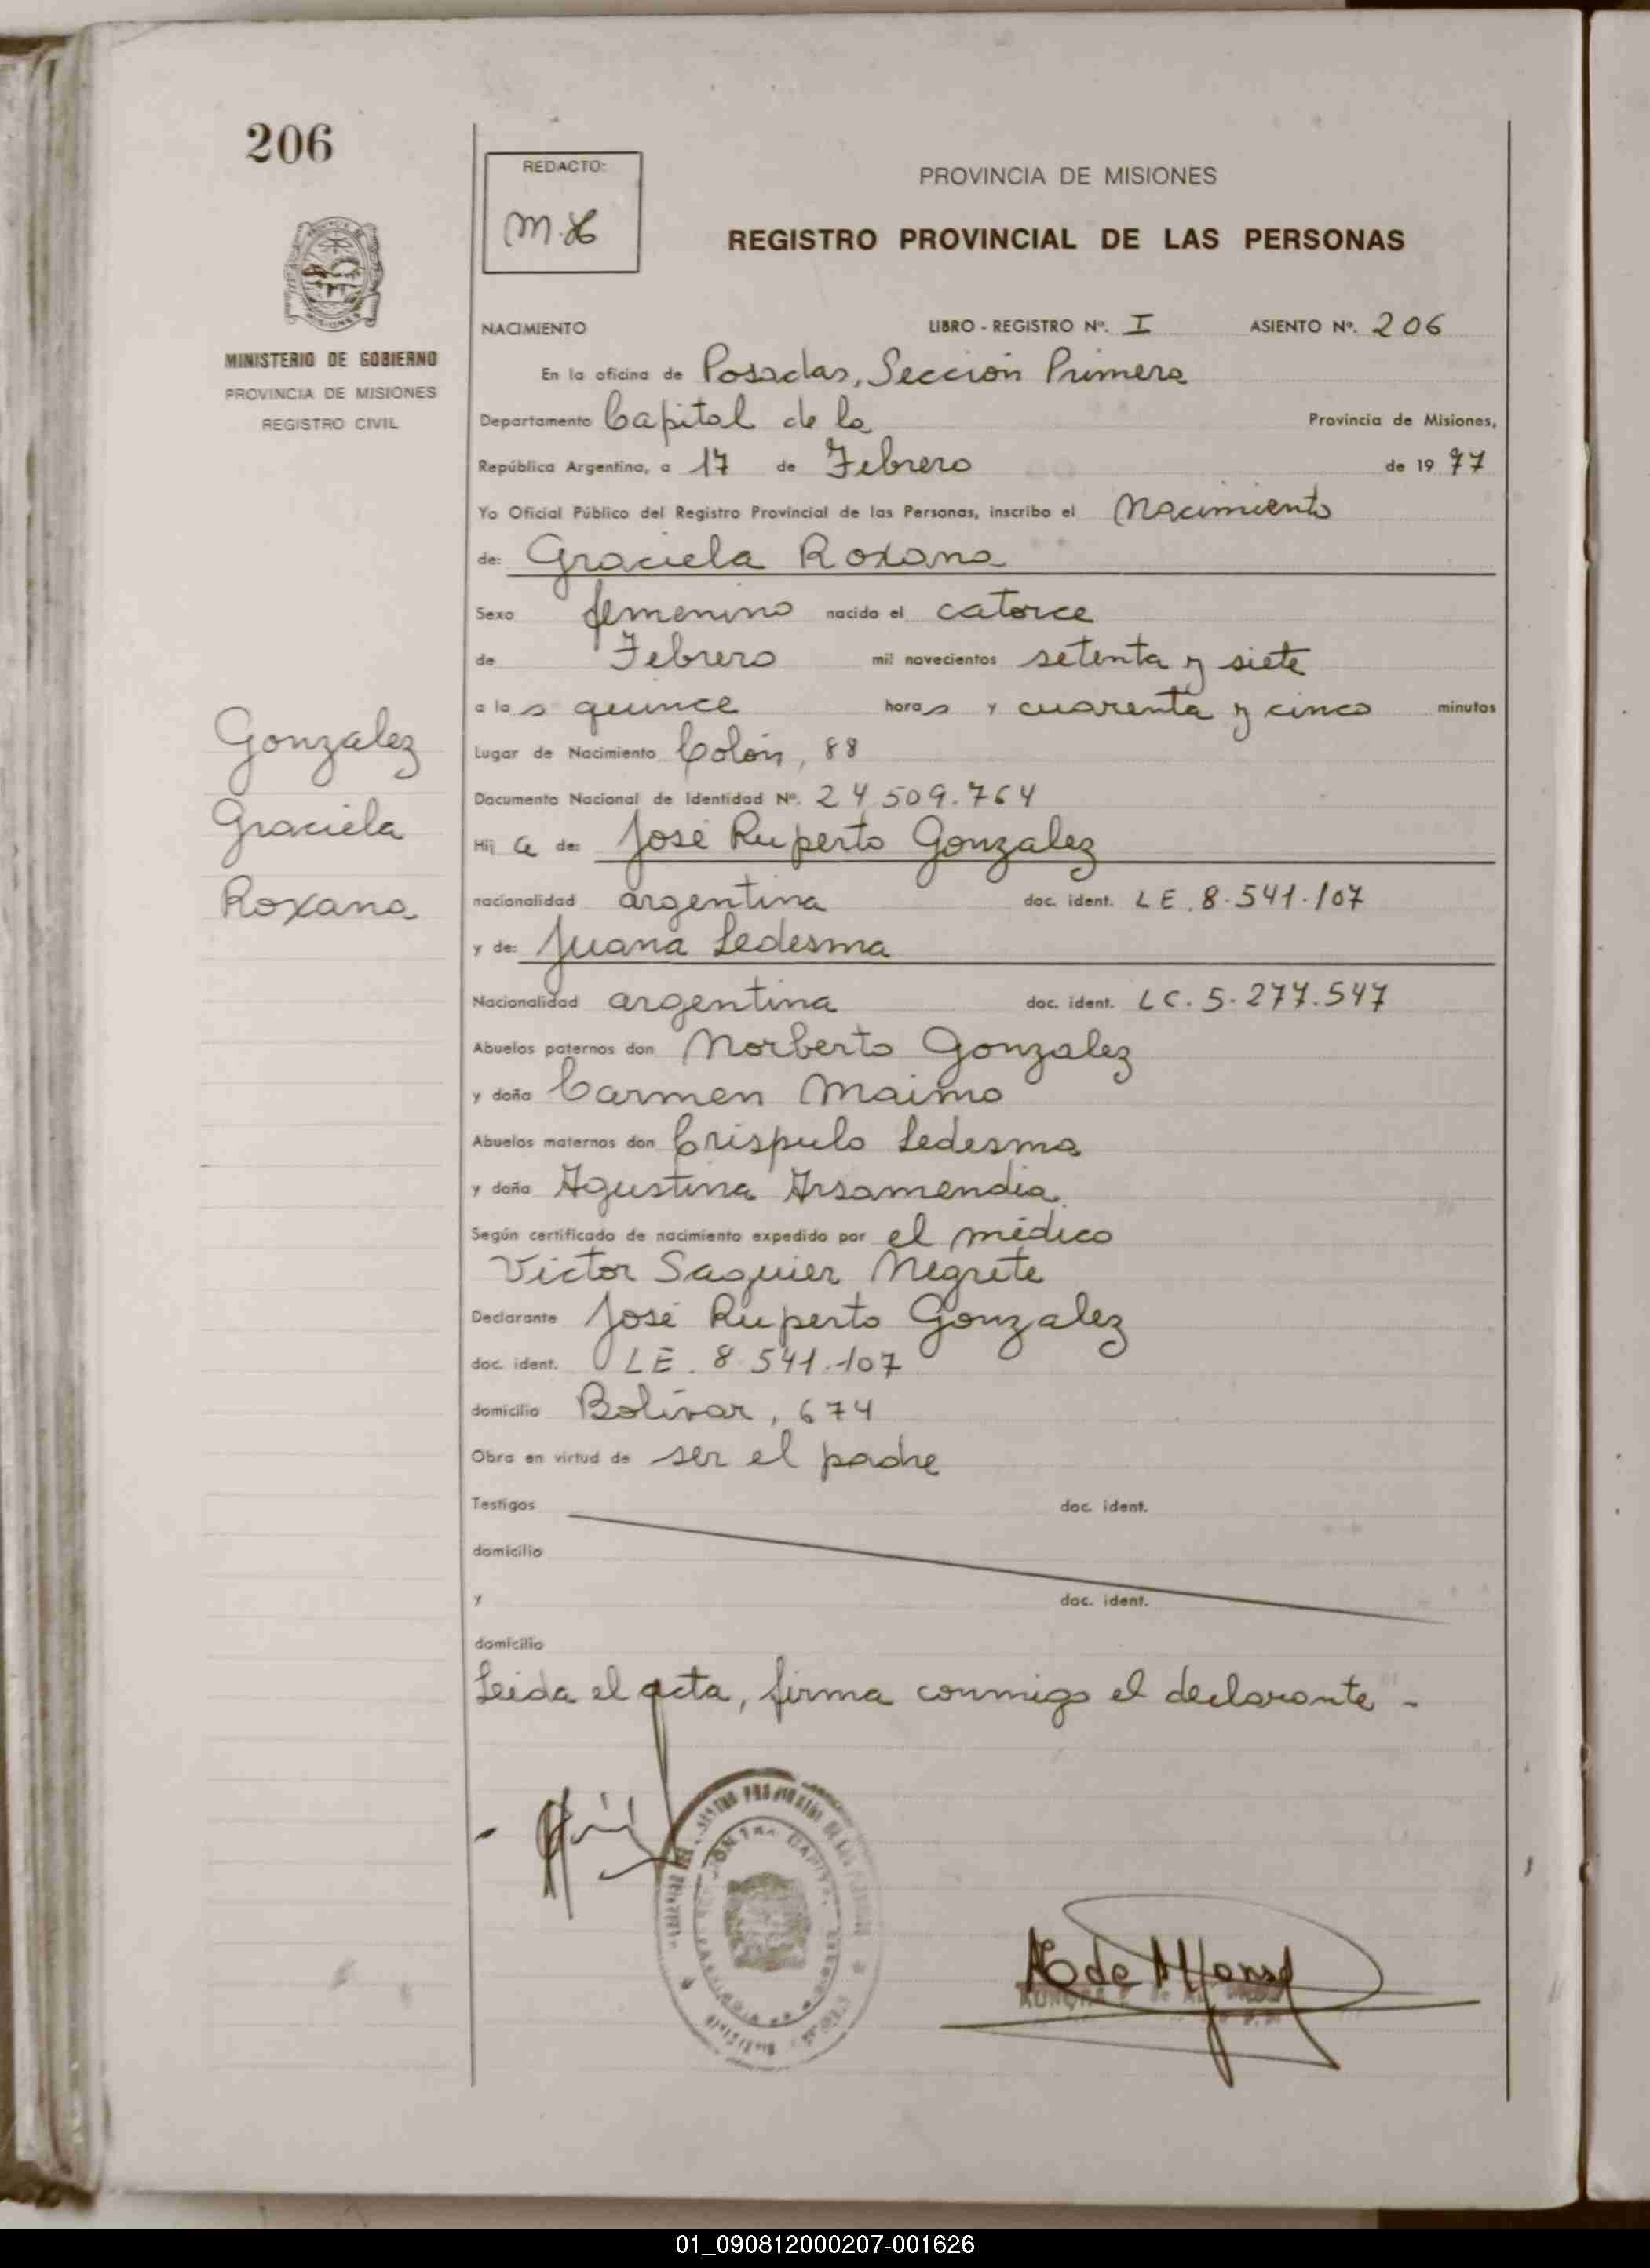 206
REDACTO:
M.H
PROVINCIA DE MISIONES
REGISTRO PROVINCIAL DE LAS PERSONAS
MISIONES
MINISTERIO DE GOBIERNO
PROVINCIA DE MISIONES
REGISTRO CIVIL
NACIMIENTO LIBRO - REGISTRO Nº. I ASIENTO Nº. 206
En la oficina de Posadas, Sección Primera
Departamento Capital de la Provincia de Misiones,
República Argentina, a 17 de Febrero de 19 77
Yo Oficial Público del Registro Provincial de las Personas, inscribo el Nacimiento
de: Graciela Roxana
Sexo femenino nacido el catorce
de Febrero mil novecientos setenta y siete
a las quince horas y cuarenta y cinco minutos
Lugar de Nacimiento Colón, 88
Documento Nacional de Identidad Nº. 24 509.764
Gonzalez
Graciela
Roxana
Hij a de: José Ruperto Gonzalez
nacionalidad argentina doc. ident. LE. 8.541.107
y de: Juana Ledesma
Nacionalidad argentina doc. ident. LC. 5.277.547
Abuelos paternos don Norberto Gonzalez
y doña Carmen Maimo
Abuelos maternos don Crispulo Ledesma
y doña Agustina Arsamendia
Según certificado de nacimiento expedido por el médico
Victor Saguier Negrete
Declarante José Ruperto Gonzalez
doc. ident. LE. 8.541.107
domicilio Bolívar, 674
Obra en virtud de ser el padre
Testigos doc. ident.
domicilio
y doc. ident.
domicilio
Leida el acta, firma conmigo el declarante -
01_090812000207-001626